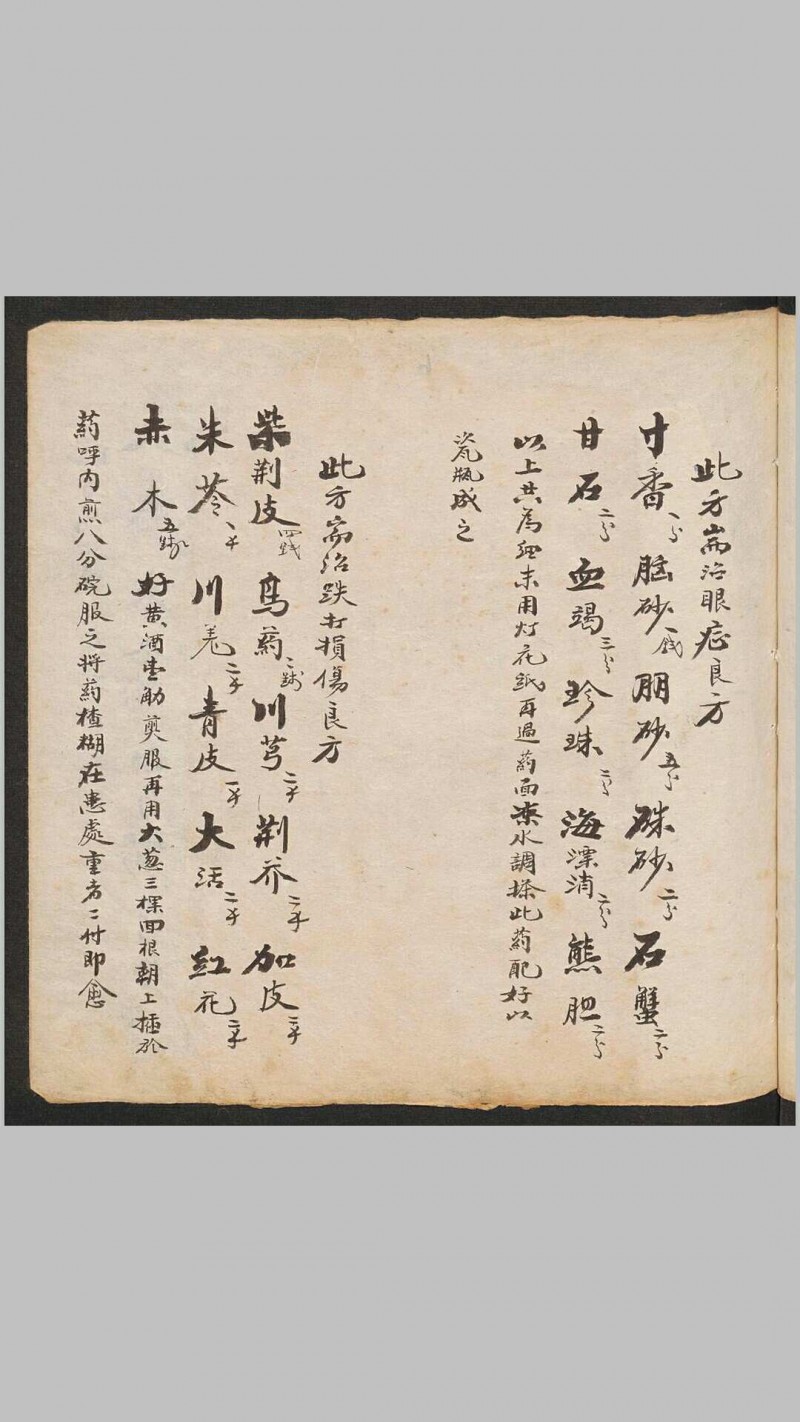 此方耑治眼症良方
寸香一分 脳砂一銭 朋砂五分 硃砂二分 石蟹二分
甘石二分 血竭三分 珍珠二分 海漂消二分 熊胆二分
以上共為細末用灯花紙再過药面 水調搽此药配好以
瓷瓶成之
此方耑治跌打損傷良方
柴荆皮四錢 烏药二錢 川芎二千 荆芥二千 加皮二千
朱苓一千 川羌二千 青皮一千 大活二千 紅花二千
赤木五錢 好黄酒壹觔煎服再用大葱三棵四根朝上插於
药呼内煎八分碗服之将药楂糊在患處重者二付即愈